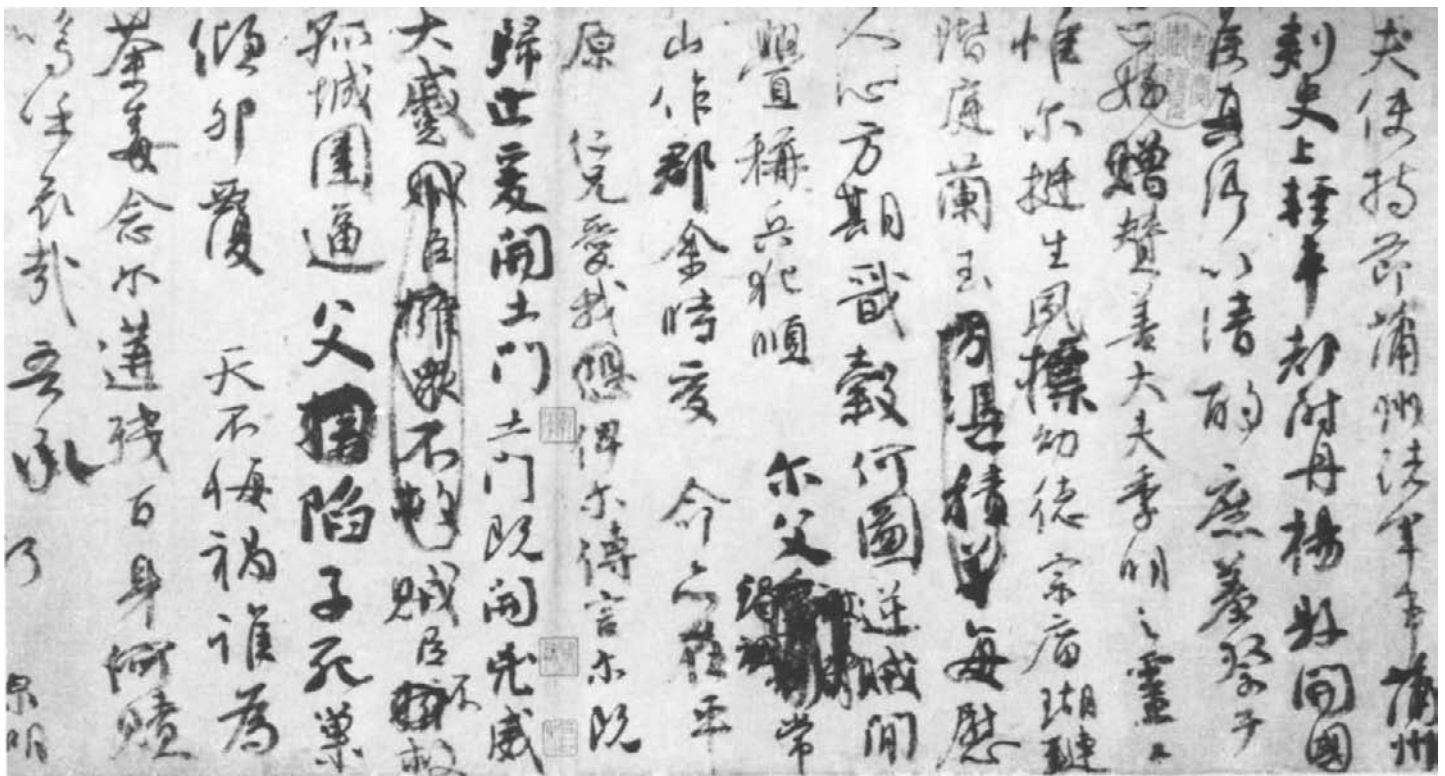 夫使持節蒲州諸軍事蒲州
刺史上輕車都尉丹楊縣開國
侯真卿以清酌庶羞祭于
亡姪贈贊善大夫季明之靈曰
惟尔挺生夙標幼德宗廟瑚璉
階庭蘭玉方憑積善每慰
人心方期戩穀何圖逆賊閒
釁稱兵犯順 尔父竭誠常
山作郡余時受 命亦在平
原 仁兄愛我俾尔傳言尔既
歸止爰開土門土門既開凶威
大蹙賊臣擁衆不救賊臣不救
孤城圍逼父陷子死巢
傾卵覆 天不悔禍誰為
荼毒念尔遘殘百身何贖
嗚呼哀哉吾承 乃 泉明